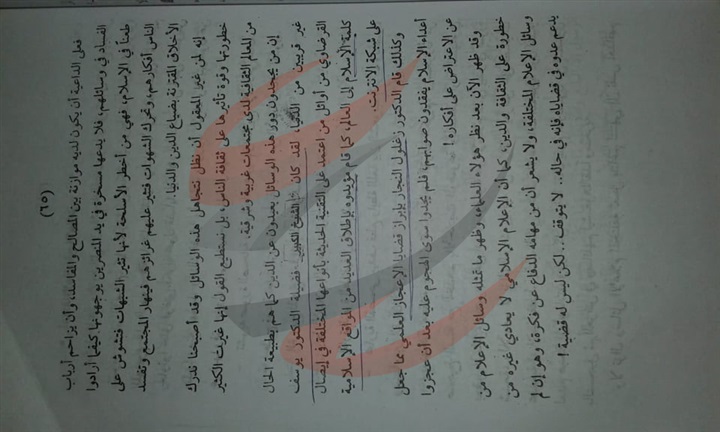 يدعم عدوه في قضاياه فإنه في حاله.. لا يتوقف.. لكن ليس له قضية !
وسائل الإعلام المختلفة، ولا يشعر أن من مهامه الدفاع عن فكرة، وهو إن لم
خطورة على الثقافة والدين. كما أن الإعلام الإسلامي لا يعادي غيره من
وقد ظهر الآن بعد نظر هؤلاء العلماء، وظهر ما تمثله وسائل الإعلام من
عن الاعتراض على أفكاره !
أعداء الإسلام يفقدون صوابهم، فلم يجدوا سوى الهجوم عليه بعد أن عجزوا
وكذلك قام الدكتور زغلول النجار بإبراز قضايا الإعجاز العلمي مما جعل
على شبكة الانترنت.
كلمة الإسلام إلى العالم، كما قام مؤيدوه بإطلاق العديد من المواقع الإسلامية
القرضاوي من أوائل من اعتمد على التقنية الحديثة بأنواعها المختلفة في إيصال
غير قريبين من الدنيا، لقد كان الشيخ الكبير فضيلة الدكتور يوسف
إن من يجحدون دور هذه الوسائل بعيدون عن الدين كما هم بطبيعة الحال
من المعالم الثقافية لدى مجتمعات غربية وشرقية.
خطورتها وقوة تأثيرها على ثقافة الناس، بل نستطيع القول إنها غيرت الكثير
إنه لمن غير المعقول أن نظل نتجاهل هذه الوسائل وقد أصبحنا ندرك
الأخلاق المقترنة بضياع الدين والدنيا.
الناس أفكارهم، وتحرك الشهوات فتثير عليهم غرائزهم فينهار المجتمع وتفسد
طعناً في الإسلام، فهي من أخطر الأسلحة لأنها تثير الشبهات فتشوش على
الفساد في وسائلهم، فلا يدعها مسخرة في يد المنصرين يوجهونها كيفما أرادوا
فعلى الداعية أن يكون لديه موازنة بين المصالح والمفاسد، وأن يزاحم أرباب
(٦٥)